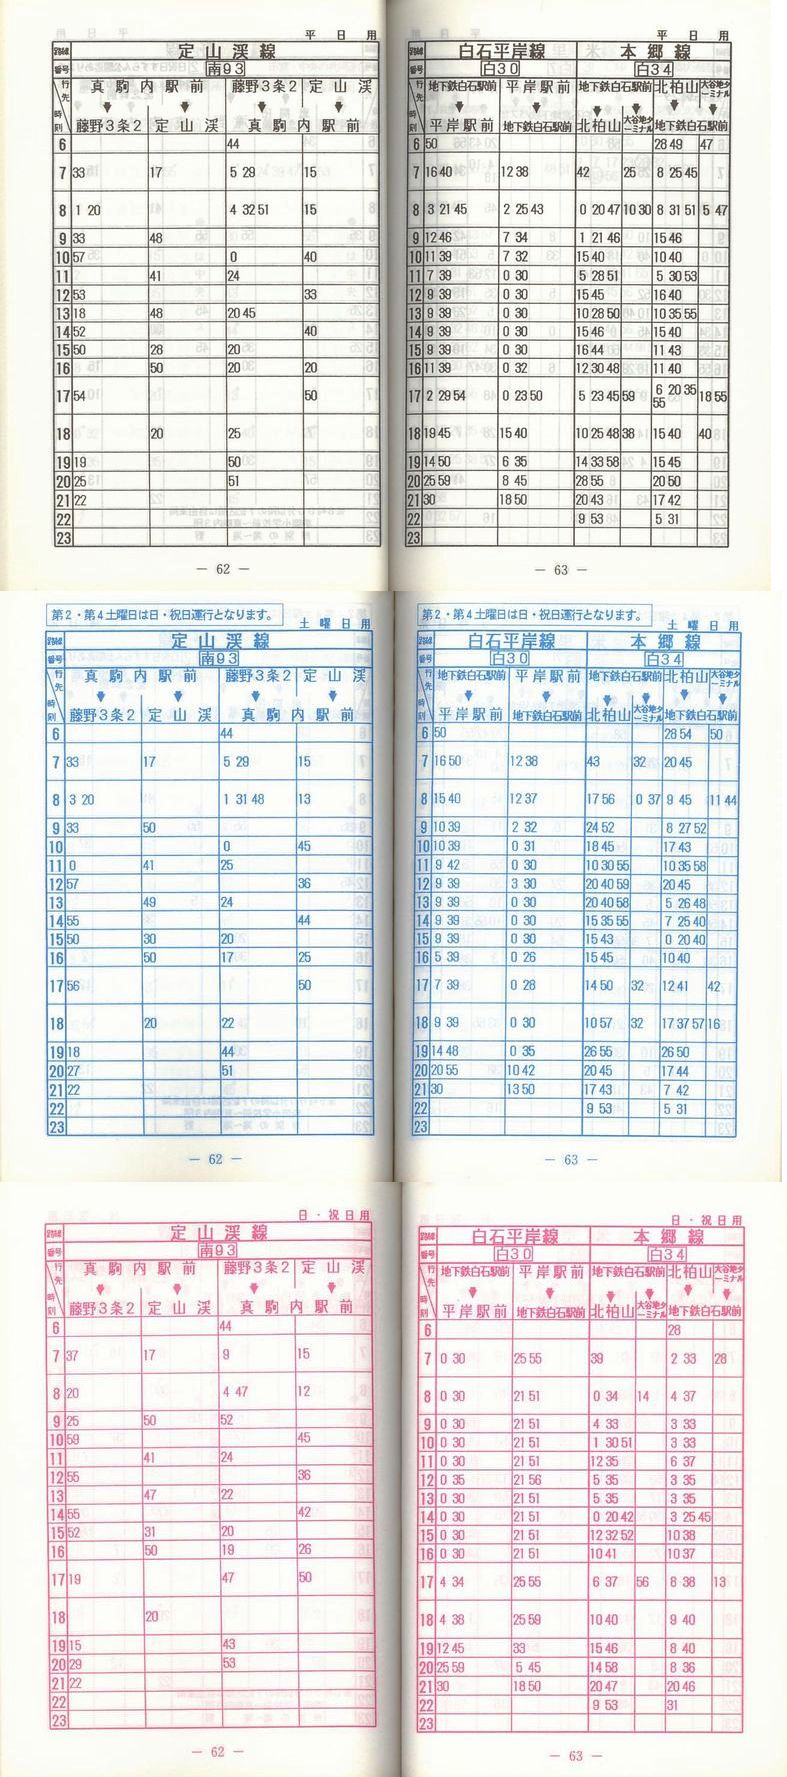 平日用
定山渓線
番号 南93
行先 真駒内駅前 藤野3条2 定山渓
時刻 藤野3条2 定山渓 真駒内駅前
6 44
7 33 17 5 29 15
8 1 20 4 32 51 15
9 33 48
10 57 0 40
11 41 24
12 53 33
13 18 48 20 45
14 52 40
15 50 28 20
16 50 20 20
17 54 50
18 20 25
19 19 50
20 25 51
21 22
22
23
― 62 ―
平日用
白石平岸線 本郷線
番号 白30 白34
行先 地下鉄白石駅前 平岸駅前 地下鉄白石駅前 北柏山 大谷地ターミナル
時刻 平岸駅前 地下鉄白石駅前 北柏山 大谷地ターミナル 地下鉄白石駅前
6 50 28 49 47
7 16 40 12 38 42 25 8 25 45
8 3 21 45 2 25 43 0 20 47 10 30 8 31 51 5 47
9 12 46 7 34 1 21 46 15 46
10 11 39 7 32 15 40 10 40
11 7 39 0 30 5 28 51 5 30 53
12 9 39 0 30 15 45 16 40
13 9 39 0 30 10 28 50 10 35 55
14 9 39 0 30 15 46 15 40
15 9 39 0 30 16 44 11 43
16 11 39 0 32 12 30 48 11 40
17 2 29 54 0 23 50 5 23 45 59 6 20 35 55 18 55
18 19 45 15 40 10 25 48 38 15 40 40
19 14 50 6 35 14 33 58 15 45
20 25 59 8 45 28 55 20 50
21 30 18 50 20 43 17 42
22 9 53 5 31
23
― 63 ―
第2・第4土曜日は日・祝日運行となります。
土曜日用
定山渓線
番号 南93
行先 真駒内駅前 藤野3条2 定山渓
時刻 藤野3条2 定山渓 真駒内駅前
6 44
7 33 17 5 29 15
8 3 20 1 31 48 13
9 33 50
10 0 45
11 0 41 25
12 57 36
13 49 24
14 55 44
15 50 30 20
16 50 17 25
17 56 50
18 20 22
19 18 44
20 27 51
21 22
22
23
― 62 ―
第2・第4土曜日は日・祝日運行となります。
土曜日用
白石平岸線 本郷線
番号 白30 白34
行先 地下鉄白石駅前 平岸駅前 地下鉄白石駅前 北柏山 大谷地ターミナル
時刻 平岸駅前 地下鉄白石駅前 北柏山 大谷地ターミナル 地下鉄白石駅前
6 50 28 54 50
7 16 50 12 38 43 32 20 45
8 15 40 12 37 17 56 0 37 9 45 11 44
9 10 39 2 32 24 52 8 27 52
10 10 39 0 31 18 45 17 43
11 9 42 0 30 10 30 55 10 35 58
12 9 39 3 30 20 40 59 20 45
13 9 39 0 30 20 40 58 5 26 48
14 9 39 0 30 15 35 55 7 25 40
15 9 39 0 30 15 43 0 20 40
16 5 39 0 26 15 45 10 40
17 7 39 0 28 14 50 32 12 41 42
18 9 39 0 30 10 57 32 17 37 57 16
19 14 48 0 35 26 55 26 50
20 20 55 10 42 20 45 17 44
21 30 13 50 17 43 7 42
22 9 53 5 31
23
― 63 ―
日・祝日用
定山渓線
番号 南93
行先 真駒内駅前 藤野3条2 定山渓
時刻 藤野3条2 定山渓 真駒内駅前
6 44
7 37 17 9 15
8 20 4 47 12
9 25 50 52
10 59 45
11 41 24
12 55 36
13 47 22
14 55 42
15 52 31 20
16 50 19 26
17 19 47 50
18 20
19 15 43
20 29 53
21 22
22
23
― 62 ―
日・祝日用
白石平岸線 本郷線
番号 白30 白34
行先 地下鉄白石駅前 平岸駅前 地下鉄白石駅前 北柏山 大谷地ターミナル
時刻 平岸駅前 地下鉄白石駅前 北柏山 大谷地ターミナル 地下鉄白石駅前
6 28
7 0 30 25 55 39 2 33 28
8 0 30 21 51 0 34 14 4 37
9 0 30 21 51 4 33 3 33
10 0 30 21 51 1 30 51 3 33
11 0 30 21 51 12 35 6 37
12 0 35 21 56 5 35 3 35
13 0 30 21 51 5 35 3 35
14 0 30 21 51 0 20 42 3 25 45
15 0 30 21 51 12 32 52 10 38
16 0 30 21 51 10 41 10 37
17 4 34 25 55 6 37 56 8 38 13
18 4 38 25 59 10 40 9 40
19 12 45 33 15 46 8 40
20 25 59 5 45 14 58 8 36
21 30 18 50 20 47 20 46
22 9 53 31
23
― 63 ―